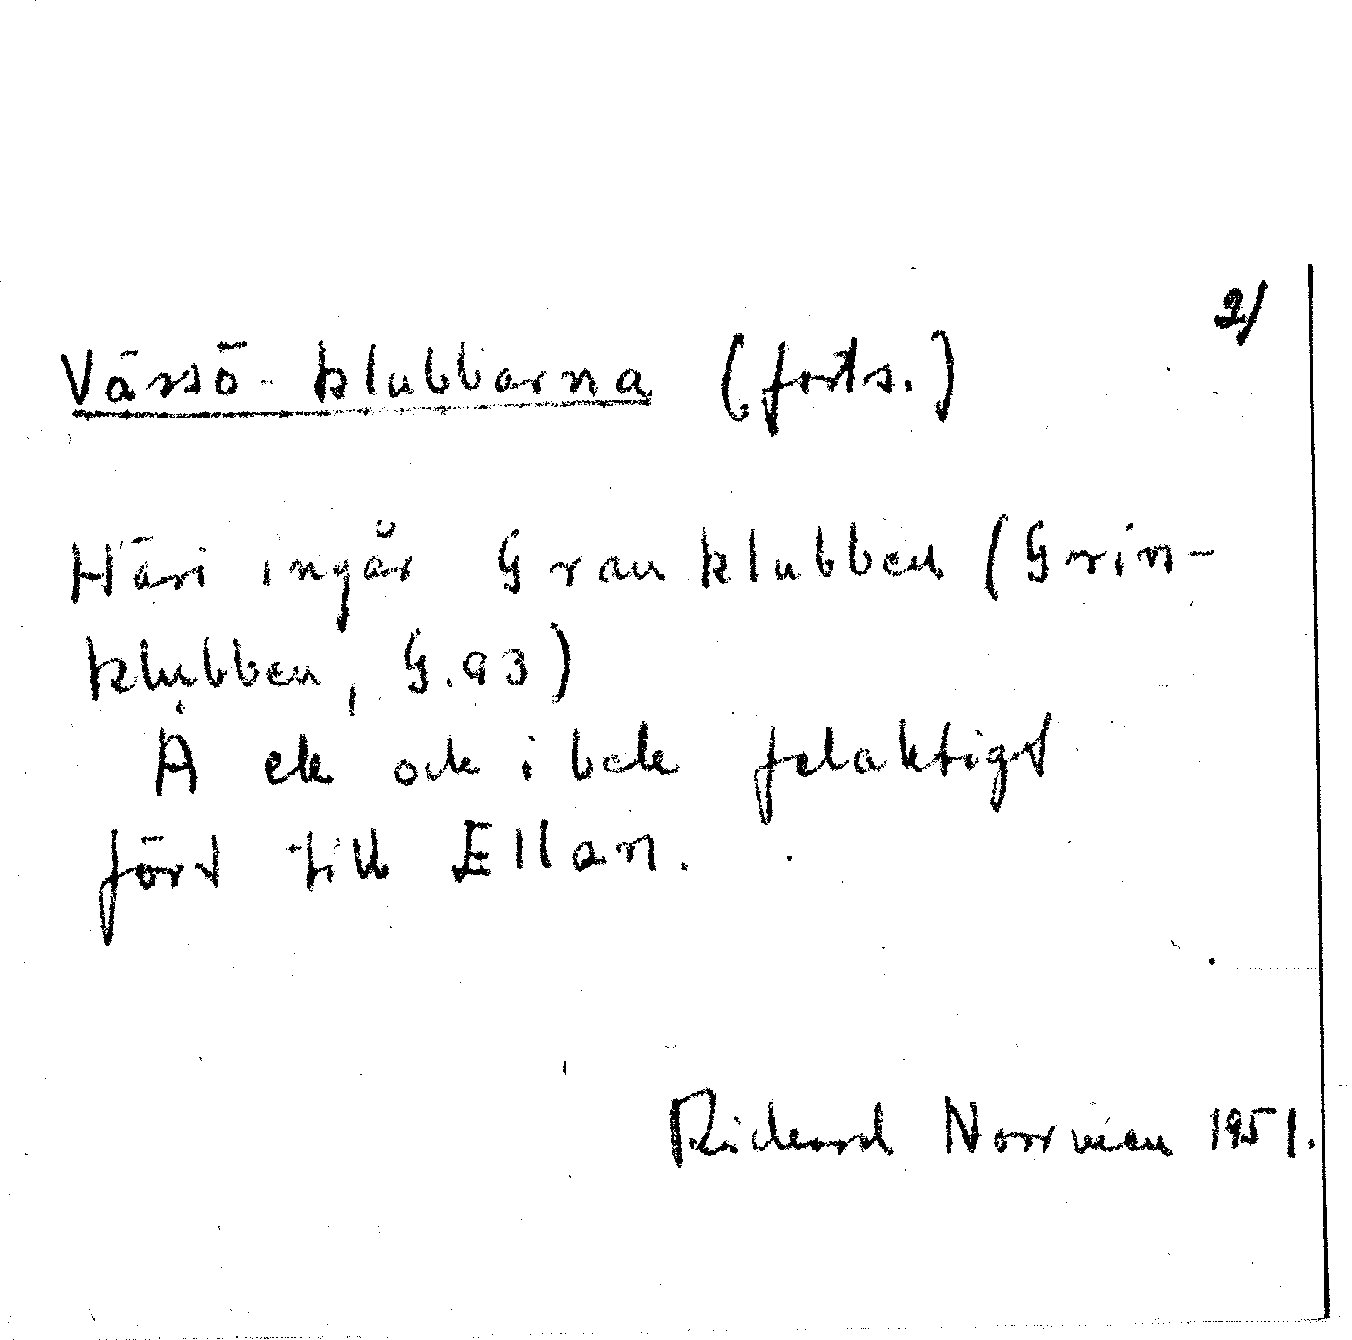 2/
Vässö-klubbarna (forts.)
Häri ingår Granklubben (Grin-
klubben, G.93)
Å ek och i bok felaktigt
förd till Ellan.
Richard Norrman 1951.